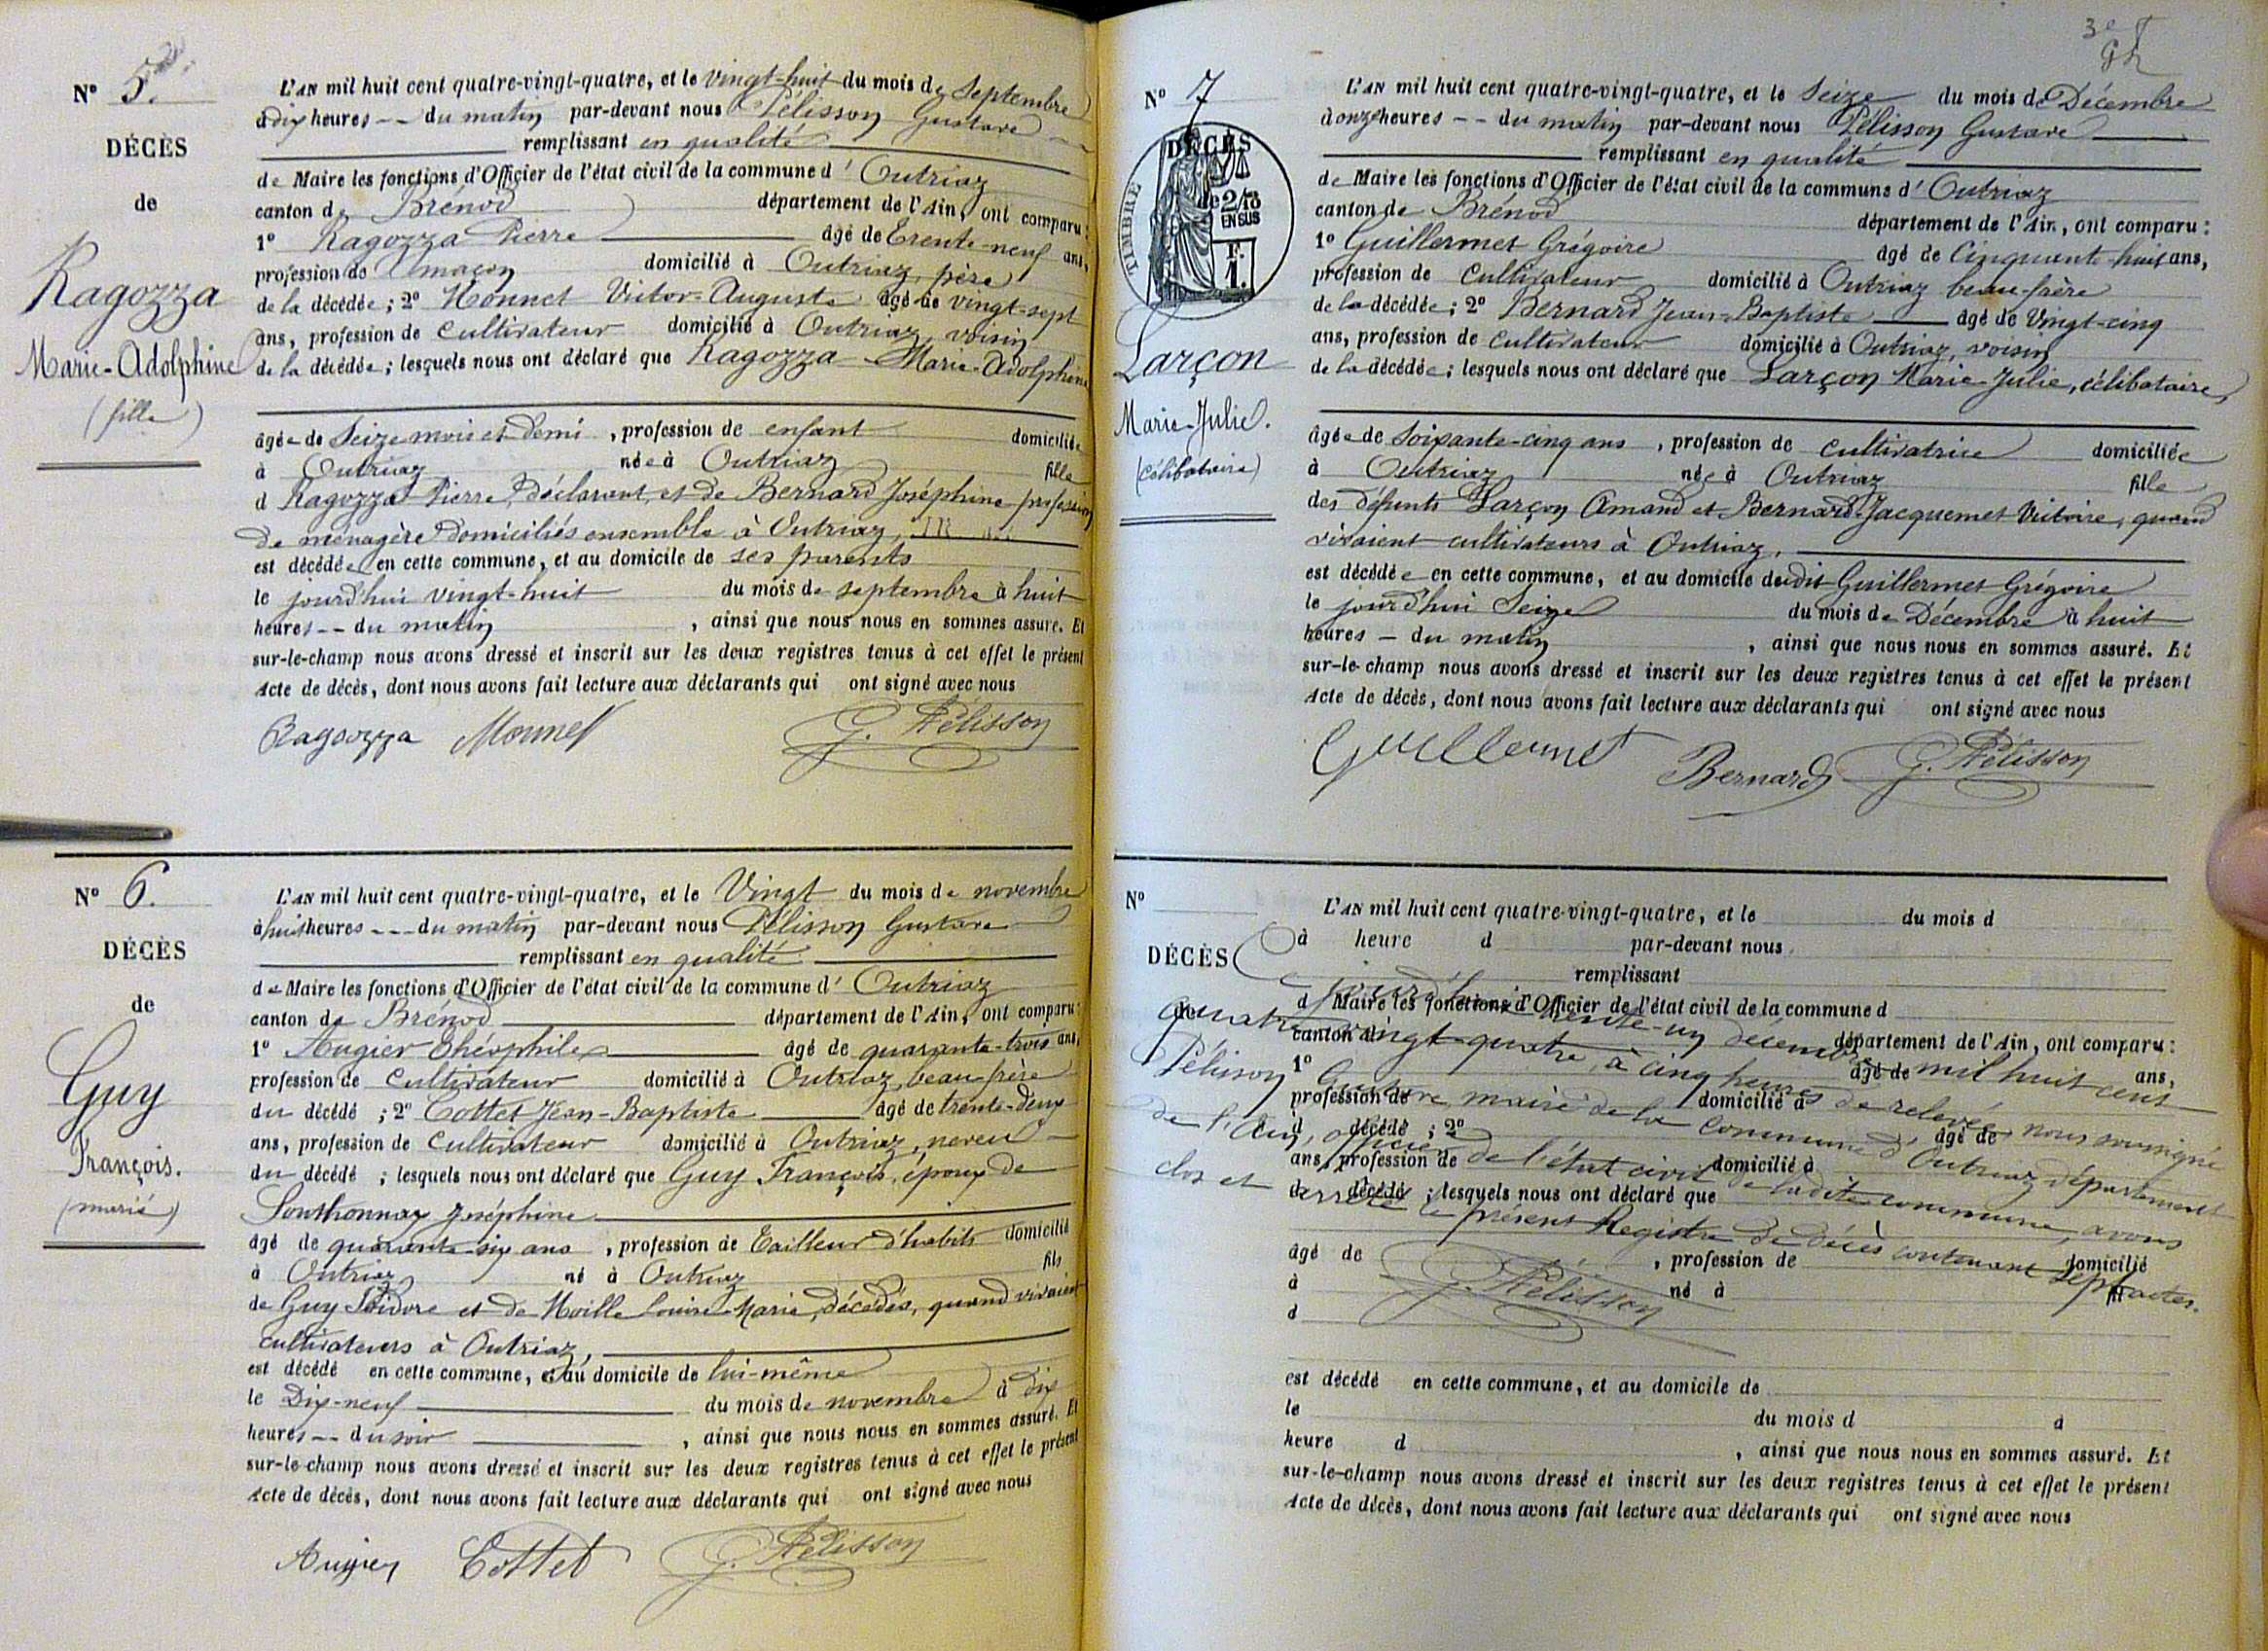 N° 5.
DÉCÈS
de
Ragozza
Marie-Adolphine
(fille)
L'AN mil huit cent quatre-vingt-quatre, et le vingt-huit du mois de Septembre
à dix heures -- du matin par-devant nous Pélisson Gustave
remplissant en qualité
de Maire les fonctions d'Officier de l'état civil de la commune d' Outriaz
canton de Brénod département de l'Ain, ont comparu :
1° Ragozza Pierre âgé de Trente-neuf ans,
profession de maçon domicilié à Outriaz, père
de la décédée ; 2° Monnet Victor-Auguste âgé de vingt-sept
ans, profession de cultivateur domicilié à Outriaz, voisin
de la décédée ; lesquels nous ont déclaré que Ragozza Marie-Adolphine
âgée de Seize mois et demi , profession de enfant domiciliée
à Outriaz née à Outriaz fille
d Ragozza Pierre, déclarant, et de Bernard Joséphine profession
de ménagère domiciliés ensemble à Outriaz,
est décédée en cette commune, et au domicile de ses parents
le jourd'hui vingt-huit du mois de septembre à huit
heures -- du matin , ainsi que nous nous en sommes assuré. Et
sur-le-champ nous avons dressé et inscrit sur les deux registres tenus à cet effet le présent
Acte de décès, dont nous avons fait lecture aux déclarants qui ont signé avec nous
Ragozza Monnet G. Pélisson
N° 6.
DÉCÈS
de
Guy
François.
(marié)
L'AN mil huit cent quatre-vingt-quatre, et le Vingt du mois de novembre
à huit heures --- du matin par-devant nous Pélisson Gustave
remplissant en qualité
de Maire les fonctions d'Officier de l'état civil de la commune d' Outriaz
canton de Brénod département de l'Ain, ont comparu :
1° Augier Théophile âgé de quarante-trois ans,
profession de cultivateur domicilié à Outriaz, beau-frère
du décédé ; 2° Cottet Jean-Baptiste âgé de trente-deux
ans, profession de cultivateur domicilié à Outriaz, neveu
du décédé ; lesquels nous ont déclaré que Guy François, époux de
Sonthonnax Joséphine
âgé de quarante-six ans , profession de Tailleur d'habits domicilié
à Outriaz né à Outriaz fils
de Guy Isidore et de Moille Louise-Marie, décédés, quand vivaient
cultivateurs à Outriaz,
est décédé en cette commune, et au domicile de lui-même
le Dix-neuf du mois de novembre à dix
heures -- du soir , ainsi que nous nous en sommes assuré. Et
sur-le-champ nous avons dressé et inscrit sur les deux registres tenus à cet effet le présent
Acte de décès, dont nous avons fait lecture aux déclarants qui ont signé avec nous
Augier Cottet G. Pélisson
N° 7
DÉCÈS
TIMBRE
2/10
EN SUS
F.
1.
Larçon
Marie-Julie.
(célibataire)
L'AN mil huit cent quatre-vingt-quatre, et le Seize du mois de Décembre
à onze heures -- du matin par-devant nous Pélisson Gustave
remplissant en qualité
de Maire les fonctions d'Officier de l'état civil de la commune d' Outriaz
canton de Brénod département de l'Ain, ont comparu :
1° Guillermet Grégoire âgé de Cinquante-huit ans,
profession de cultivateur domicilié à Outriaz beau-frère
de la décédée ; 2° Bernard Jean-Baptiste âgé de Vingt-cinq
ans, profession de cultivateur domicilié à Outriaz, voisin
de la décédée ; lesquels nous ont déclaré que Larçon Marie-Julie, célibataire,
âgée de Soixante-cinq ans , profession de cultivatrice domiciliée
à Outriaz née à Outriaz fille
des défunts Larçon Amand et Bernard-Jacquemet Victoire, quand
vivaient cultivateurs à Outriaz,
est décédée en cette commune, et au domicile dudit Guillermet Grégoire
le jourd'hui Seize du mois de Décembre à huit
heures - du matin , ainsi que nous nous en sommes assuré. Et
sur-le-champ nous avons dressé et inscrit sur les deux registres tenus à cet effet le présent
Acte de décès, dont nous avons fait lecture aux déclarants qui ont signé avec nous
Guillermet Bernard G. Pélisson
N°
DÉCÈS
L'AN mil huit cent quatre-vingt-quatre, et le du mois d
à heure d par-devant nous
remplissant
d Maire les fonctions d'Officier de l'état civil de la commune d
canton d département de l'Ain, ont comparu :
1° âgé de ans,
profession de domicilié à
d décédé ; 2° âgé de
ans, profession de domicilié à
d décédé ; lesquels nous ont déclaré que
Ce jourd'hui trente-un décembre mil huit cent
quatre-vingt-quatre, à cinq heures de relevée, nous soussigné
Pélisson Gustave, maire de la commune d'Outriaz département
de l'Ain, officier de l'état civil de ladite commune, avons
clos et arrêté le présent Registre de décès contenant sept actes.
G. Pélisson
âgé de , profession de domicilié
à né à fil
d
est décédé en cette commune, et au domicile de
le du mois d à
heure d , ainsi que nous nous en sommes assuré. Et
sur-le-champ nous avons dressé et inscrit sur les deux registres tenus à cet effet le présent
Acte de décès, dont nous avons fait lecture aux déclarants qui ont signé avec nous